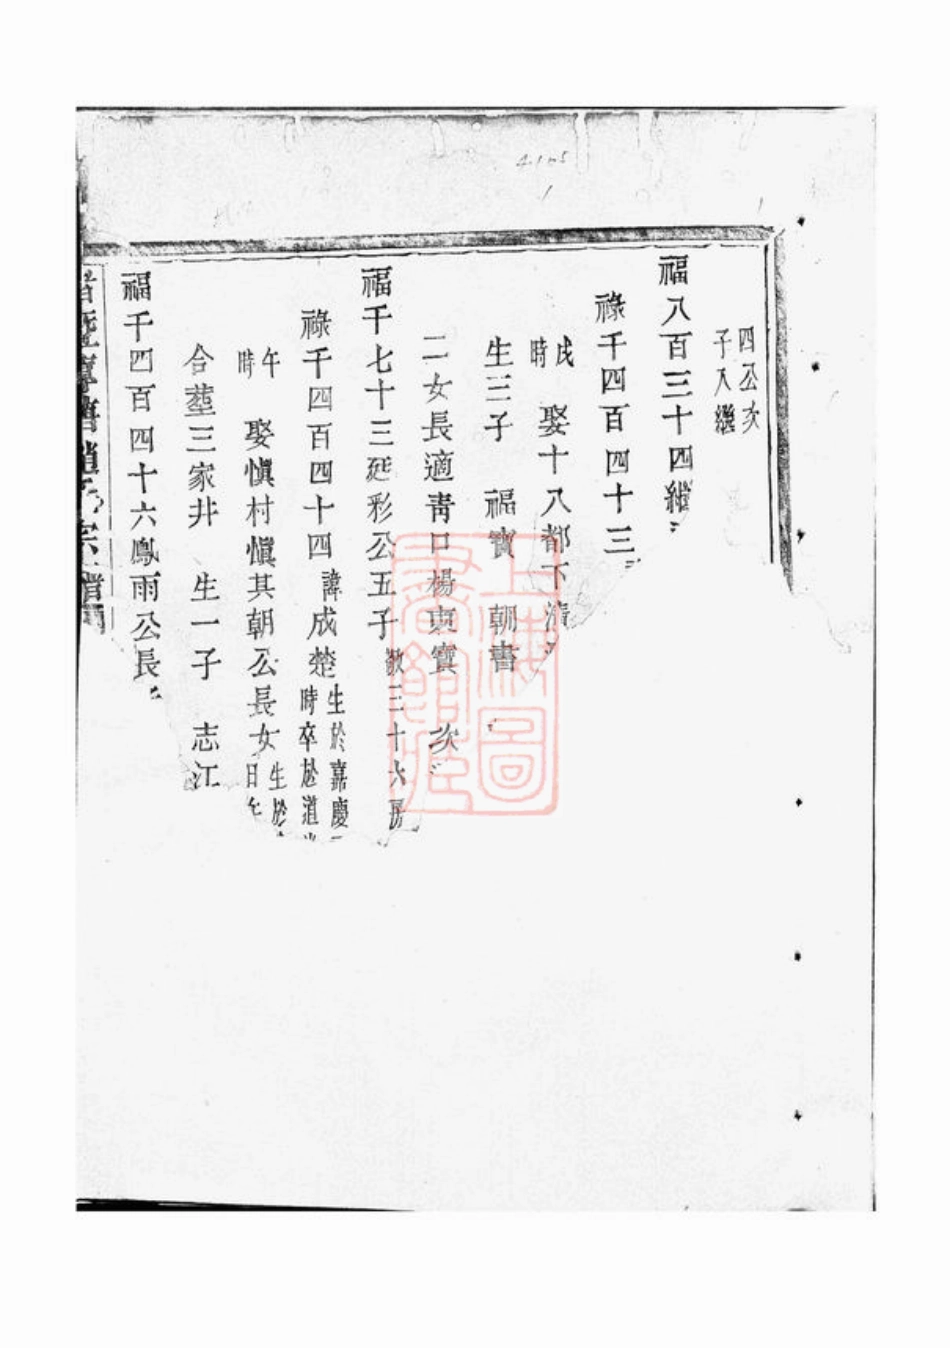 四公次
子入繼
福八百三十四繼
祿千四百四十三
戌
時
娶十八都下清
生三子　福寳　朝書
二女長適青口楊東寳　次
福千七十三延彩公五子
敬三十六房
祿千四百四十四
諱
成楚
生於嘉慶
時卒於道光
午
時
娶愼村愼其朝公長女
生於
日午
合塟三家井　生一子　志江
福千四百四十六鳳雨公長
上海圖書館藏